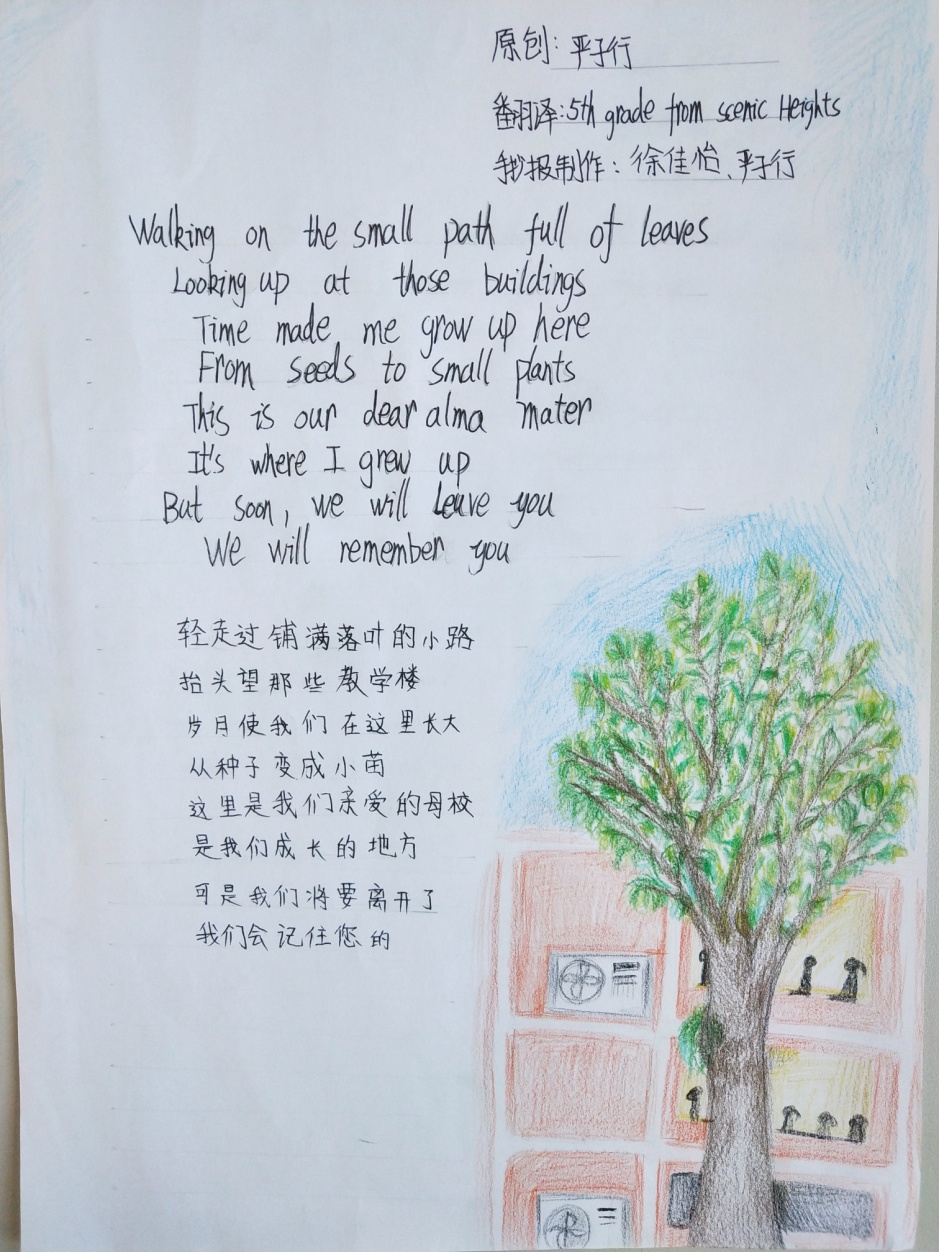 原创: 严子行
翻译:5th grade from scenic Heights
手抄报制作: 徐佳怡、严子行
Walking on the small path full of leaves
Looking up at those buildings
Time made me grow up here
From seeds to small plants
This is our dear alma mater
It's where I grew up
But soon, we will leave you
We will remember you
轻走过铺满落叶的小路
抬头望那些教学楼
岁月使我们在这里长大
从种子变成小苗
这里是我们亲爱的母校
是我们成长的地方
可是我们将要离开了
我们会记住您的